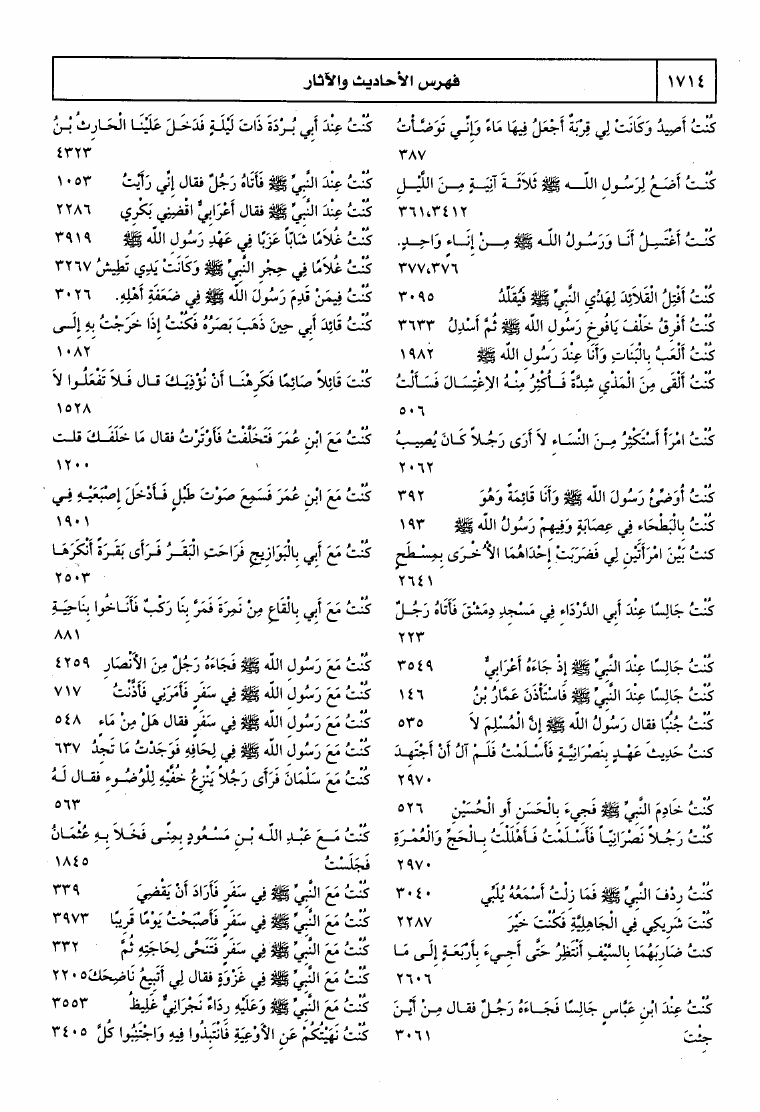 ١٧١٤
فهرس الأحاديث والآثار
كُنْتُ أَصِيدُ وَكَانَتْ لِي قِرْبَةٌ أَجْعَلُ فِيهَا مَاءً وَإِنِّي تَوَضَّأْتُ
٣٨٧
كُنْتُ أَضَعُ لِرَسُولِ اللهِ ﷺ ثَلَاثَةَ آنِيَةٍ مِنَ اللَّيْلِ
٣٦١،٣٤١٢
كُنْتُ أَغْتَسِلُ أَنَا وَرَسُولُ اللهِ ﷺ مِنْ إِنَاءٍ وَاحِدٍ.
٣٧٧،٣٧٦
كُنْتُ أَفْتِلُ الْقَلَائِدَ لِهَدْيِ النَّبِيِّ ﷺ فَيُقَلِّدُ ٣٠٩٥
كُنْتُ أَفْرِقُ خَلْفَ يَافُوخِ رَسُولِ اللهِ ﷺ ثُمَّ أَسْدِلُ ٣٦٣٣
كُنْتُ أَلْعَبُ بِالْبَنَاتِ وَأَنَا عِنْدَ رَسُولِ اللهِ ﷺ ١٩٨٢
كُنْتُ أَلْقَى مِنَ الْمَذْيِ شِدَّةً فَأُكْثِرُ مِنْهُ الاِغْتِسَالَ فَسَأَلْتُ
٥٠٦
كُنْتُ امْرَأً أَسْتَكْثِرُ مِنَ النِّسَاءِ لاَ أَرَى رَجُلاً كَانَ يُصِيبُ
٢٠٦٢
كُنْتُ أُوَضِّئُ رَسُولَ اللهِ ﷺ وَأَنَا قَائِمَةٌ وَهُوَ ٣٩٢
كُنْتُ بِالْبَطْحَاءِ فِي عِصَابَةٍ وَفِيهِمْ رَسُولُ اللهِ ﷺ ١٩٣
كنتُ بَيْنَ امْرَأَتَيْنِ لِي فَضَرَبَتْ إِحْدَاهُمَا الأُخْرَى بِمِسْطَحٍ
٢٦٤١
كُنْتُ جَالِسًا عِنْدَ أَبِي الدَّرْدَاءِ فِي مَسْجِدِ دِمَشْقَ فَأَتَاهُ رَجُلٌ
٢٢٣
كُنْتُ جَالِسًا عِنْدَ النَّبِيِّ ﷺ إِذْ جَاءَهُ أَعْرَابِيٌّ ٣٥٤٩
كُنْتُ جَالِسًا عِنْدَ النَّبِيِّ ﷺ فَاسْتَأْذَنَ عَمَّارُ بْنُ ١٤٦
كُنْتُ جُنُبًا فقال رَسُولُ اللهِ ﷺ إِنَّ الْمُسْلِمَ لاَ ٥٣٥
كنتُ حَدِيثَ عَهْدٍ بِنَصْرَانِيَّةٍ فَأَسْلَمْتُ فَلَمْ آلُ أَنْ أَجْتَهِدَ
٢٩٧٠
كُنْتُ خَادِمَ النَّبِيِّ ﷺ فَجِيءَ بِالْحَسَنِ أَوِ الْحُسَيْنِ ٥٢٦
كُنْتُ رَجُلاً نَصْرَانِيّاً فَأَسْلَمْتُ فَأَهْلَلْتُ بِالْحَجِّ وَالْعُمْرَةِ
٢٩٧٠
كُنْتُ رِدْفَ النَّبِيِّ ﷺ فَمَا زِلْتُ أَسْمَعُهُ يُلَبِّي ٣٠٤٠
كُنْتَ شَرِيكِي فِي الْجَاهِلِيَّةِ فَكُنْتَ خَيْرَ ٢٢٨٧
كنتُ ضَارِبَهُمَا بِالسَّيْفِ أَنْتَظِرُ حَتَّى أَجِيءَ بِأَرْبَعَةٍ إِلَى مَا
٢٦٠٦
كُنْتُ عِنْدَ ابْنِ عَبَّاسٍ جَالِسًا فَجَاءَهُ رَجُلٌ فقال مِنْ أَيْنَ
جِئْتَ ٣٠٦١
كُنْتُ عِنْدَ أَبِي بُرْدَةَ ذَاتَ لَيْلَةٍ فَدَخَلَ عَلَيْنَا الْحَارِثُ بْنُ
٤٣٢٣
كُنْتُ عِنْدَ النَّبِيِّ ﷺ فَأَتَاهُ رَجُلٌ فقال إِنِّي رَأَيْتُ ١٠٥٣
كُنْتُ عِنْدَ النَّبِيِّ ﷺ فقال أَعْرَابِيٌّ اقْضِنِي بَكْرِي ٢٢٨٦
كُنْتُ غُلاَمًا شَابّاً عَزَبًا فِي عَهْدِ رَسُولِ اللهِ ﷺ ٣٩١٩
كُنْتُ غُلاَمًا فِي حِجْرِ النَّبِيِّ ﷺ وَكَانَتْ يَدِي تَطِيشُ ٣٢٦٧
كُنْتُ فِيمَنْ قَدِمَ رَسُولَ اللهِ ﷺ فِي ضَعَفَةِ أَهْلِهِ. ٣٠٢٦
كُنْتُ قَائِدَ أَبِي حِينَ ذَهَبَ بَصَرُهُ فَكُنْتُ إِذَا خَرَجْتُ بِهِ إِلَى
١٠٨٢
كُنْتَ قَائِلاً صَائِمًا فَكَرِهْنَا أَنْ نُؤْذِيَكَ قال فَلاَ تَفْعَلُوا لاَ
١٥٢٨
كُنْتُ مَعَ ابْنِ عُمَرَ فَتَخَلَّفْتُ فَأَوْتَرْتُ فقال مَا خَلَفَكَ قلت
١٢٠٠
كُنْتُ مَعَ ابْنِ عُمَرَ فَسَمِعَ صَوْتَ طَبْلٍ فَأَدْخَلَ إِصْبَعَيْهِ فِي
١٩٠١
كُنْتُ مَعَ أَبِي بِالْبَوَازِيجِ فَرَاحَتِ الْبَقَرُ فَرَأَى بَقَرَةً أَنْكَرَهَا
٢٥٠٣
كُنْتُ مَعَ أَبِي بِالْقَاعِ مِنْ نَمِرَةَ فَمَرَّ بِنَا رَكْبٌ فَأَنَاخُوا بِنَاحِيَةِ
٨٨١
كُنْتُ مَعَ رَسُولِ اللهِ ﷺ فَجَاءَهُ رَجُلٌ مِنَ الأَنْصَارِ ٤٢٥٩
كُنْتُ مَعَ رَسُولِ اللهِ ﷺ فِي سَفَرٍ فَأَمَرَنِي فَأَذَّنْتُ ٧١٧
كُنْتُ مَعَ رَسُولِ اللهِ ﷺ فِي سَفَرٍ فقال هَلْ مِنْ مَاءٍ ٥٤٨
كُنْتُ مَعَ رَسُولِ اللهِ ﷺ فِي لِحَافِهِ فَوَجَدْتُ مَا تَجِدُ ٦٣٧
كُنْتُ مَعَ سَلْمَانَ فَرَأَى رَجُلاً يَنْزِعُ خُفَّيْهِ لِلْوُضُوءِ فقال لَهُ
٥٦٣
كُنْتُ مَعَ عَبْدِ اللهِ بْنِ مَسْعُودٍ بِمِنًى فَخَلاَ بِهِ عُثْمَانُ
فَجَلَسْتُ ١٨٤٥
كُنْتُ مَعَ النَّبِيِّ ﷺ فِي سَفَرٍ فَأَرَادَ أَنْ يَقْضِيَ ٣٣٩
كُنْتُ مَعَ النَّبِيِّ ﷺ فِي سَفَرٍ فَأَصْبَحْتُ يَوْمًا قَرِيبًا ٣٩٧٣
كُنْتُ مَعَ النَّبِيِّ ﷺ فِي سَفَرٍ فَتَنَحَّى لِحَاجَتِهِ ثُمَّ ٣٣٢
كُنْتُ مَعَ النَّبِيِّ ﷺ فِي غَزْوَةٍ فقال لِي أَتَبِيعُ نَاضِحَكَ ٢٢٠٥
كُنْتُ مَعَ النَّبِيِّ ﷺ وَعَلَيْهِ رِدَاءٌ نَجْرَانِيٌّ غَلِيظُ ٣٥٥٣
كُنْتُ نَهَيْتُكُمْ عَنِ الأَوْعِيَةِ فَانْتَبِذُوا فِيهِ وَاجْتَنِبُوا كُلَّ ٣٤٠٥